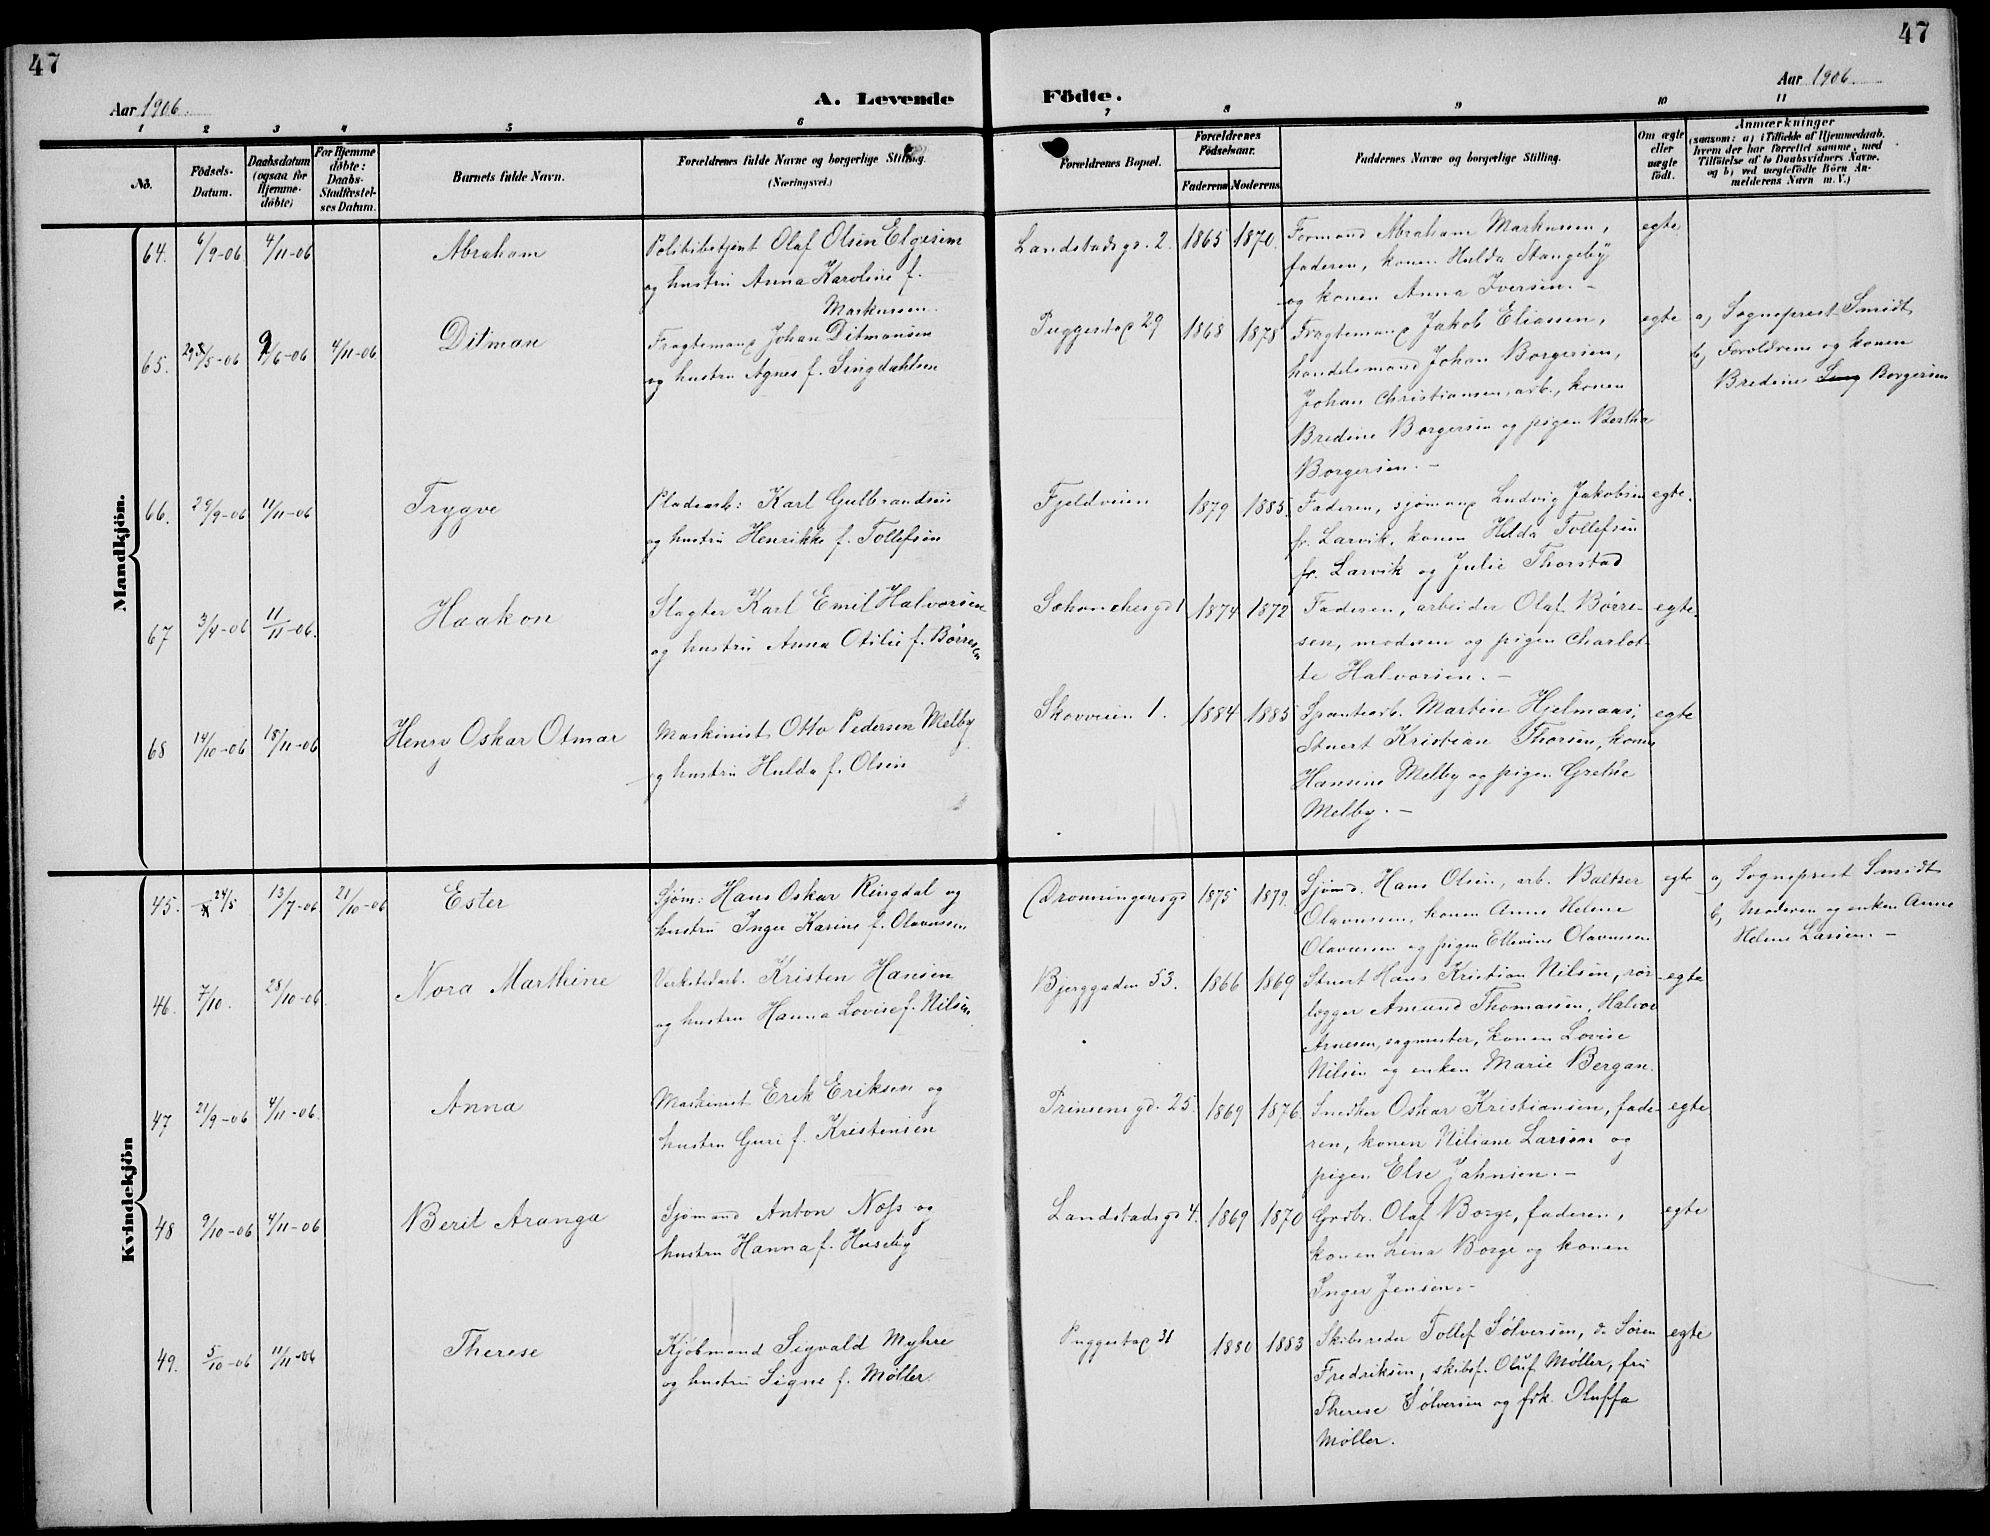 47
47
Aar 1906.
A. Levende Födte.
Aar 1906.
1 2 3 4 5 6 7 8 9 10 11
No.
Födsels-Datum.
Daabsdatum (ogsaa for Hjemmedöbte)
For Hjemmedöbte: Daabs-Stadfæstelses Datum.
Barnets fulde Navn.
Forældrenes fulde Navne og borgerlige Stilling.
(Næringsvei.)
Forældrenes Bopæl.
Forældrenes Födselsaar.
Faderens Moderens
Faddernes Navne og borgerlige Stilling.
Om ægte eller uægte födt.
Anmærkninger
(saasom: a) i Tilfælde af Hjemmedaab, hvem der har forrettet samme, med Tilföielse af to Daabsvidners Navne, og b) ved uægtefödte Börn Anmelderens Navn m. V.)
Mandkjön.
64. 6/9-06 4/11-06 Abraham
Politibetjent Olaf Olsen Elgesem
og hustru Anna Karoline f.
Markussen.
Landstadsgd. 2. 1865 1870.
Formand Abraham Markussen,
faderen, konen Hulda Stangeby
og konen Anna Iversen. -
egte
65. 29/5-06 9/6-06 4/11-06 Ditman
Fragtemand Johan Ditmansen
og hustru Agnes f. Singdahlsen
Puggestad 29 1868 1878
Fragtemand Jakob Eliassen,
handelsmand Johan Borgersen,
Johan Christiansen, arb., konen
Bredine Borgersen og pigen Bertha
Borgersen. -
egte
a) Sogneprest Smidt
b) Forældrene og konen
Bredine Borgersen
66. 29/9-06 11/11-06 Trygve
Pladearb: Karl Gulbrandsen
og hustru Henrikke f. Tollefsen
Fjeldveien 1879 1885.
Faderen, sjømand Ludvig Jakobsen
fr. Larvik, konen Hilda Tollefsen
fr. Larvik og Julie Thorstad
egte.
67 3/4-06 11/11-06. Haakon
Slagter Karl Emil Halvorsen
og hustru Anna Otilie f. Børresen
1874 1872
Faderen, arbeider Olaf Børre-
sen, moderen og pigen Charlot-
te Halvorsen. -
egte.
68 14/10-06 18/11-06 Henry Oskar Otmar
Maskinist Otto Pedersen Melby
og hustru Hulda f. Olsen
Skovveien 1. 1884 1885
Martin Hjelmaas,
Stuert Kristian Thorsen, konen
Hansine Melby og pigen Grethe
Melby. -
egte
Kvindekjön
45. 24/5 13/7-06 21/10-06 Ester
Sjøm: Hans Oskar Ringdal og
hustru Inger Karine f. Olavessen
Dronningensgd 1875 1879.
Sjømd. Hans Olsen, arb. Baltzer
Olavussen, konen Anne Helene
Olavussen og pigen Ellevine Olavussen.
egte
a) Sogneprest Smidt
b) Moderen og enken Anne
Helene Larsen. -
46. 7/10. 28/10-06 Nora Marthine
Verkstedarb. Kristen Hansen
og hustru Hanna Lovise f. Nilsen
Bjerggaden 53. 1866 1869
Stuert Hans Kristian Nilsen, rør-
legger Amund Thomassen, Halvor
Arnesen, sagmester, konen Lovise
Nilsen og enken Marie Bergan.
egte
47 21/9-06 4/11-06. Anna
Maskinist Erik Eriksen og
hustru Guri f. Kristensen
Prinsensgd. 25. 1869 1876.
Snedker Oskar Kristiansen, fade-
ren, konen Niliane Larsen og
pigen Else Jahnsen. -
egte
48 9/10-06 4/11-06 Berit Aranga
Sjømand Anton Næss og
hustru Hanna f. Huseby
Landstadsgd 4. 1869 1870
Grdbr. Olaf Borge, faderen,
konen Lina Borge og konen
Inger Jensen. -
egte
49. 5/10-06 11/11-06 Therese
Kjøbmand Sigvald Myhre
og hustru Signe f. Møller.
Puggestad 31 1880 1883
Skibsreder Tollef Sølversen, do Søren
Fredriksen, skibsf. Oluf Møller, fru
Therese Sølversen og frk. Oluffa
Møller.
egte